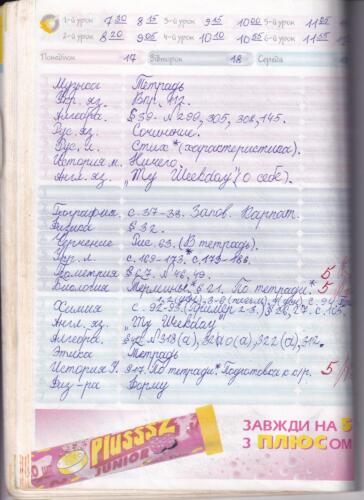 1-й урок 7 30 8 15 3-й урок 9 15 10 00 5-й урок 11 05
2-й урок 8 20 9 05 4-й урок 10 10 10 55 6-й урок 11 55
Понеділок 17 Вівторок 18 Середа
Музыка Тетрадь
Укр. яз. Впр. 412.
Алгебра. § 39. № 290, 305, 308, 145.
Рус. яз. Сочинение.
Рус. л. Стих * (характеристика).
История м. Ничего.
Англ. яз. „My Weekday" (о себе).
География. с. 37-38. Запов. Карпат.
Физика § 32.
Черчение Рис. 63. (В тетрадь).
Укр. л. с. 169-173. * с. 179-186.
Геометрия § 6,7. № 46, 49. 5
Биология § 21. По тетради. * 5
Химия с. 92-93. (Пример 2-3.) § 26, 27. с. 105.
Англ. яз. „My Weekday"
Алгебра. № 318(а), 320(а), 322(а), 312.
Этика Тетрадь
История У. § 17. По тетради. * Подготовка к к/р. 5
Физ-ра Форму
ЗАВЖДИ НА 5
З ПЛЮСОМ
Plusssz
JUNIOR